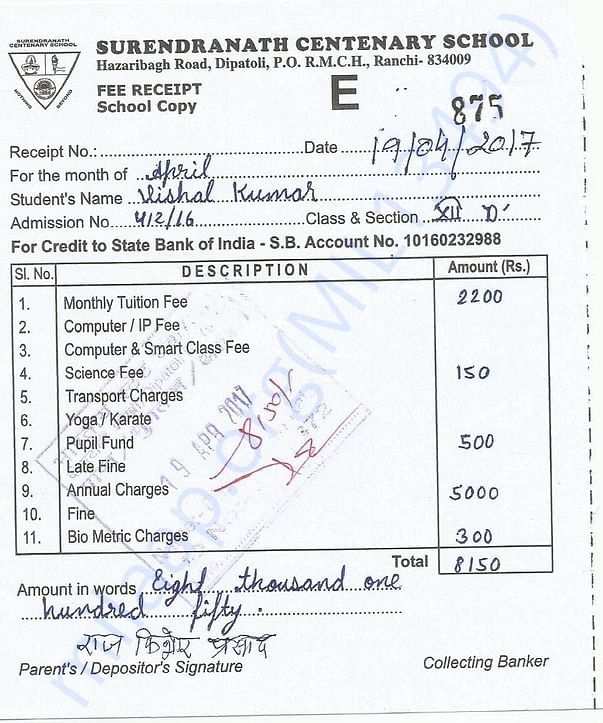 SURENDRANATH
CENTENARY SCHOOL
NOTHING BEYOND
SURENDRANATH CENTENARY SCHOOL
Hazaribagh Road, Dipatoli, P.O. R.M.C.H., Ranchi- 834009
FEE RECEIPT
School Copy
E
875
Receipt No.: Date 19/04/2017
For the month of April
Student's Name Vishal Kumar
Admission No. 412/16 Class & Section XII 'D'
For Credit to State Bank of India - S.B. Account No. 10160232988
Sl. No. DESCRIPTION Amount (Rs.)
1. Monthly Tuition Fee 2200
2. Computer / IP Fee
3. Computer & Smart Class Fee
4. Science Fee 150
5. Transport Charges
6. Yoga / Karate
7. Pupil Fund 500
8. Late Fine
9. Annual Charges 5000
10. Fine
11. Bio Metric Charges 300
Total 8150
19 APR 2017
8150/-
Amount in words Eight thousand one
hundred fifty.
राज किशोर प्रसाद
Parent's / Depositor's Signature Collecting Banker